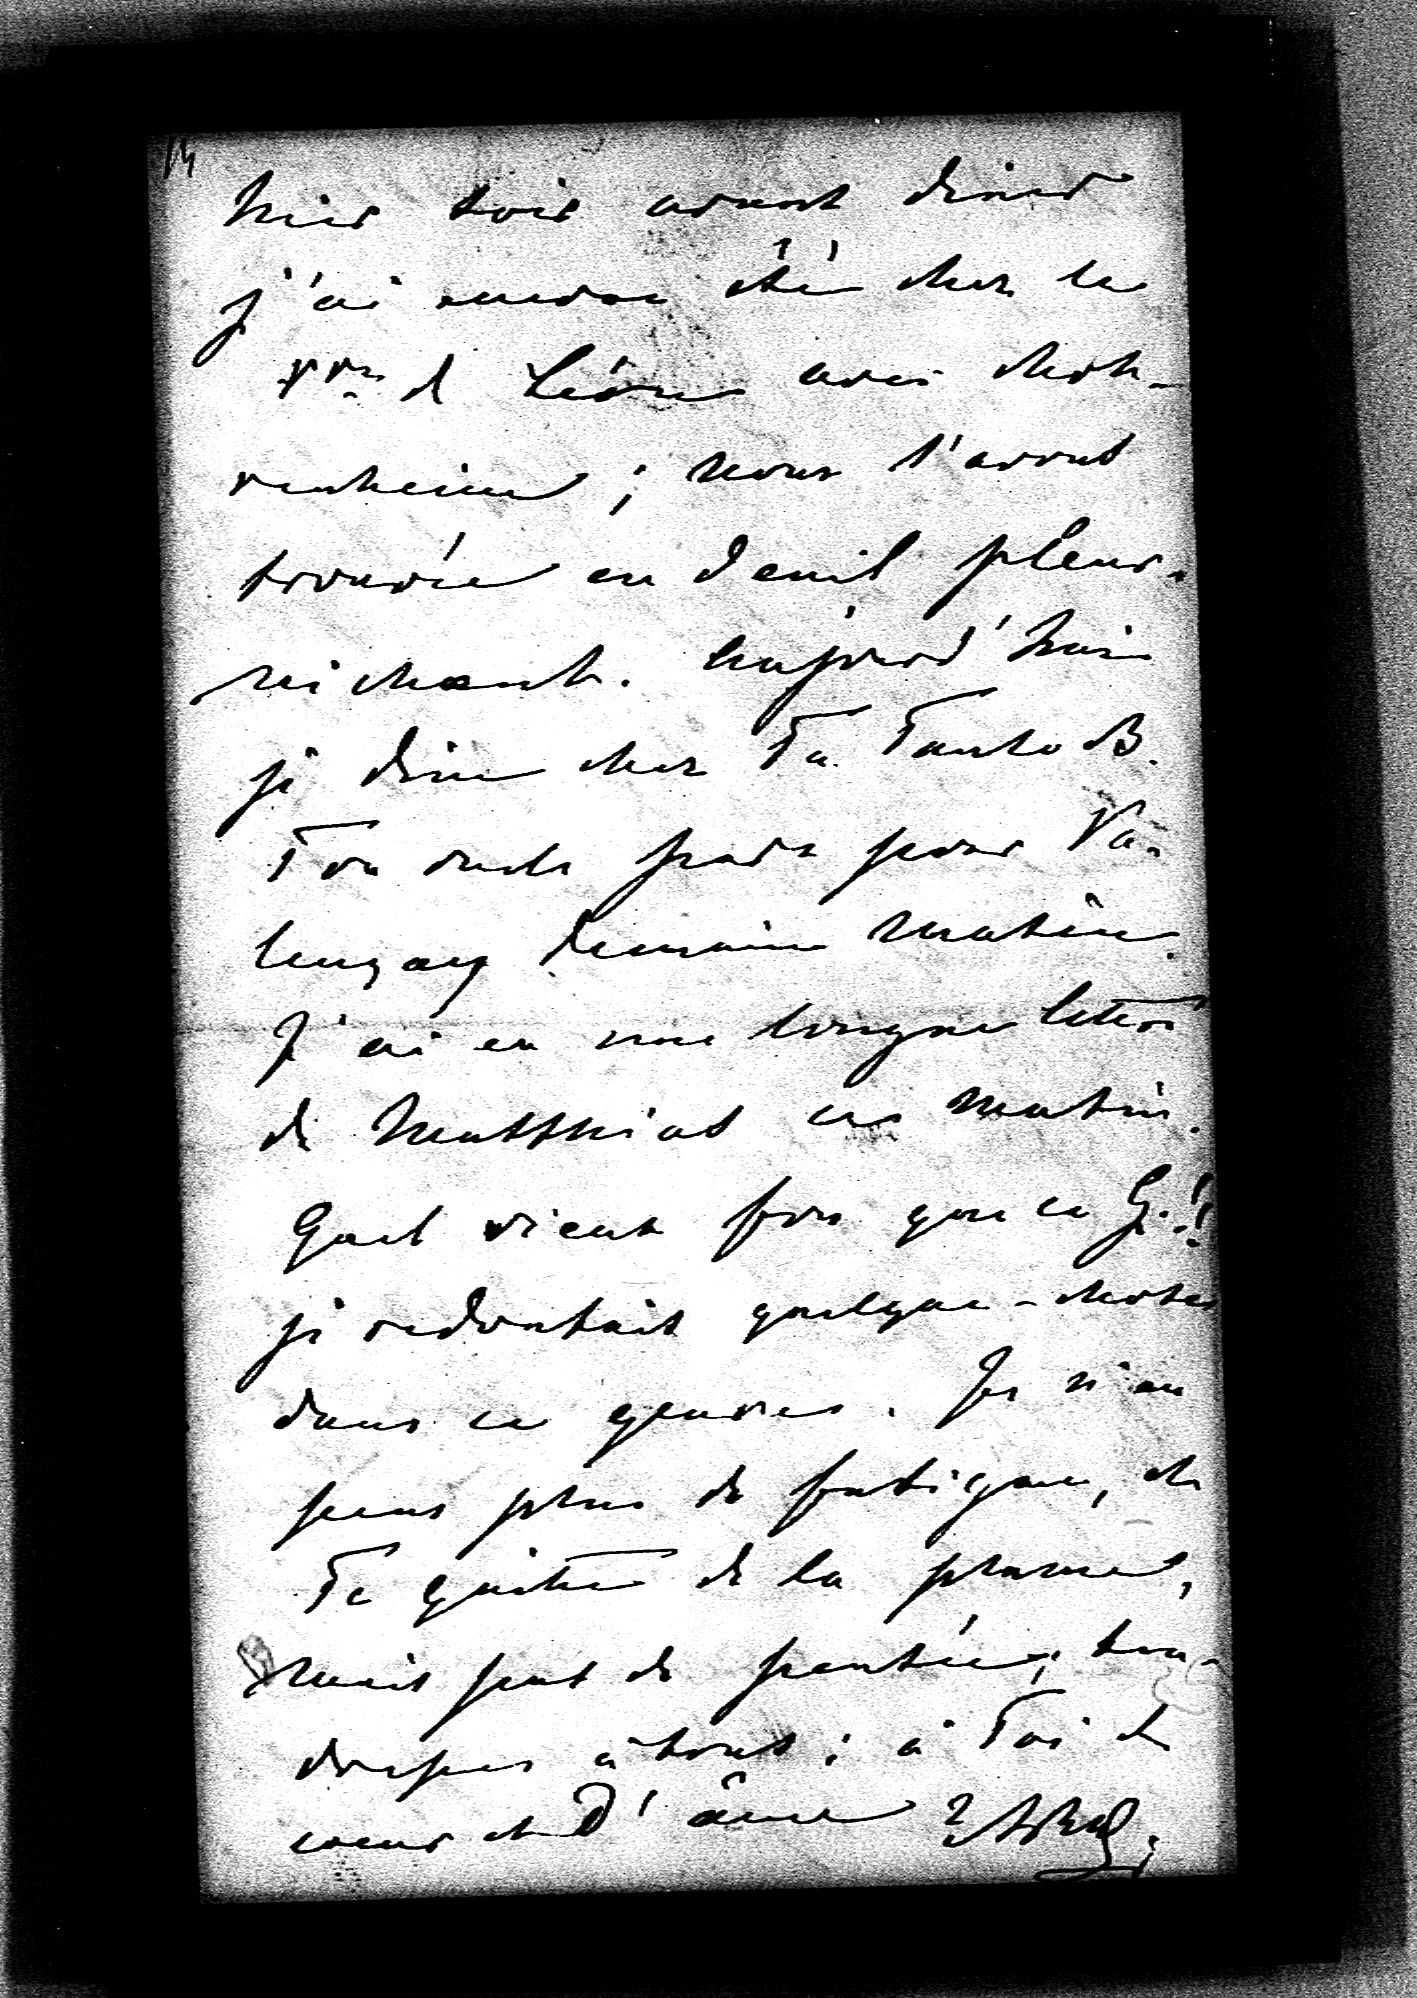 hier soir avant diner
j'ai encore été chez la
Pcesse de Léon avec Hoh-
enheim ; nous l'avons
trouvée en deuil pleur-
nichant. Aujourd'hui
je dine chez Ta Tante B.
Ton oncle part pour Va-
lençay demain matin.
J'ai eu une longue lettre
de Matthias ce matin.
Quel vieux fou que ce G.!!
je redoutais quelque-chose
dans ce genre. Je n'en
peux plus de fatigue, et
Te quitte de la plume,
mais pas de pensée; ten-
dresses à tous ; à Toi de
coeur et d'âme